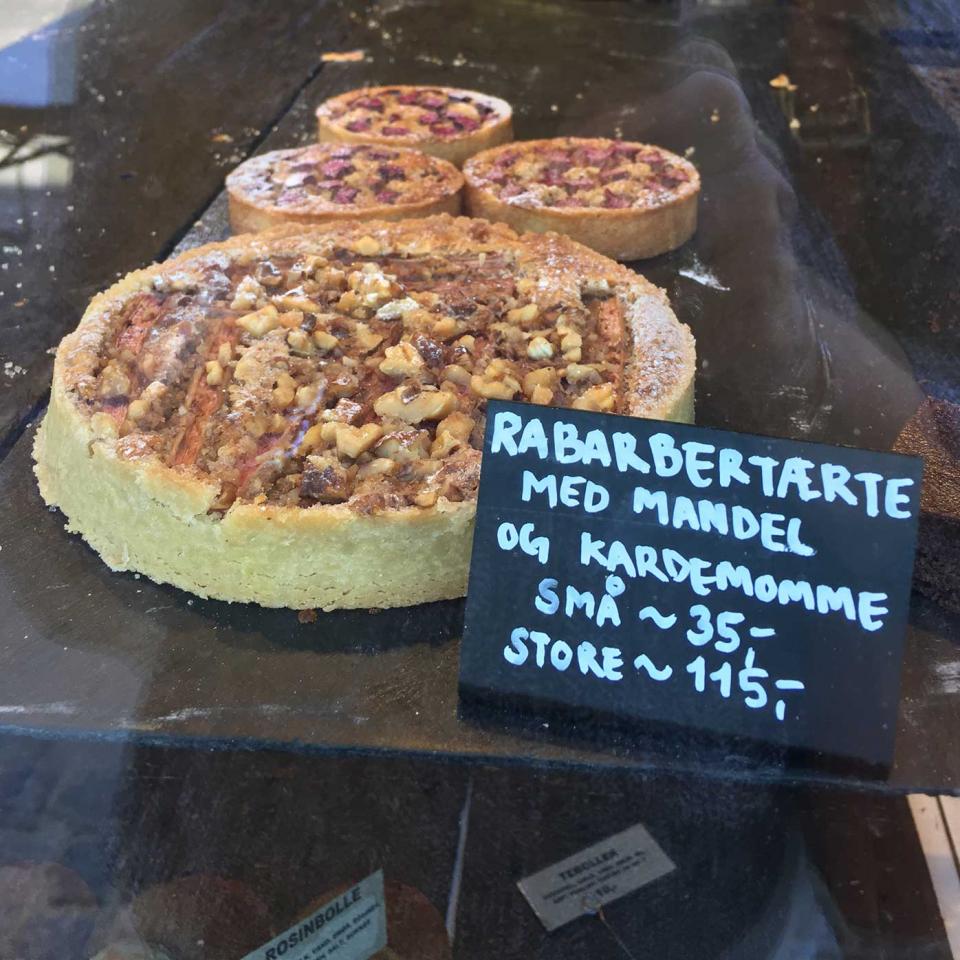 RABARBERTÆRTE
MED MANDEL
OG KARDEMOMME
SMÅ ~ 35,-
STORE ~ 115,-
TEBOLLER
10,-
ROSINBOLLE